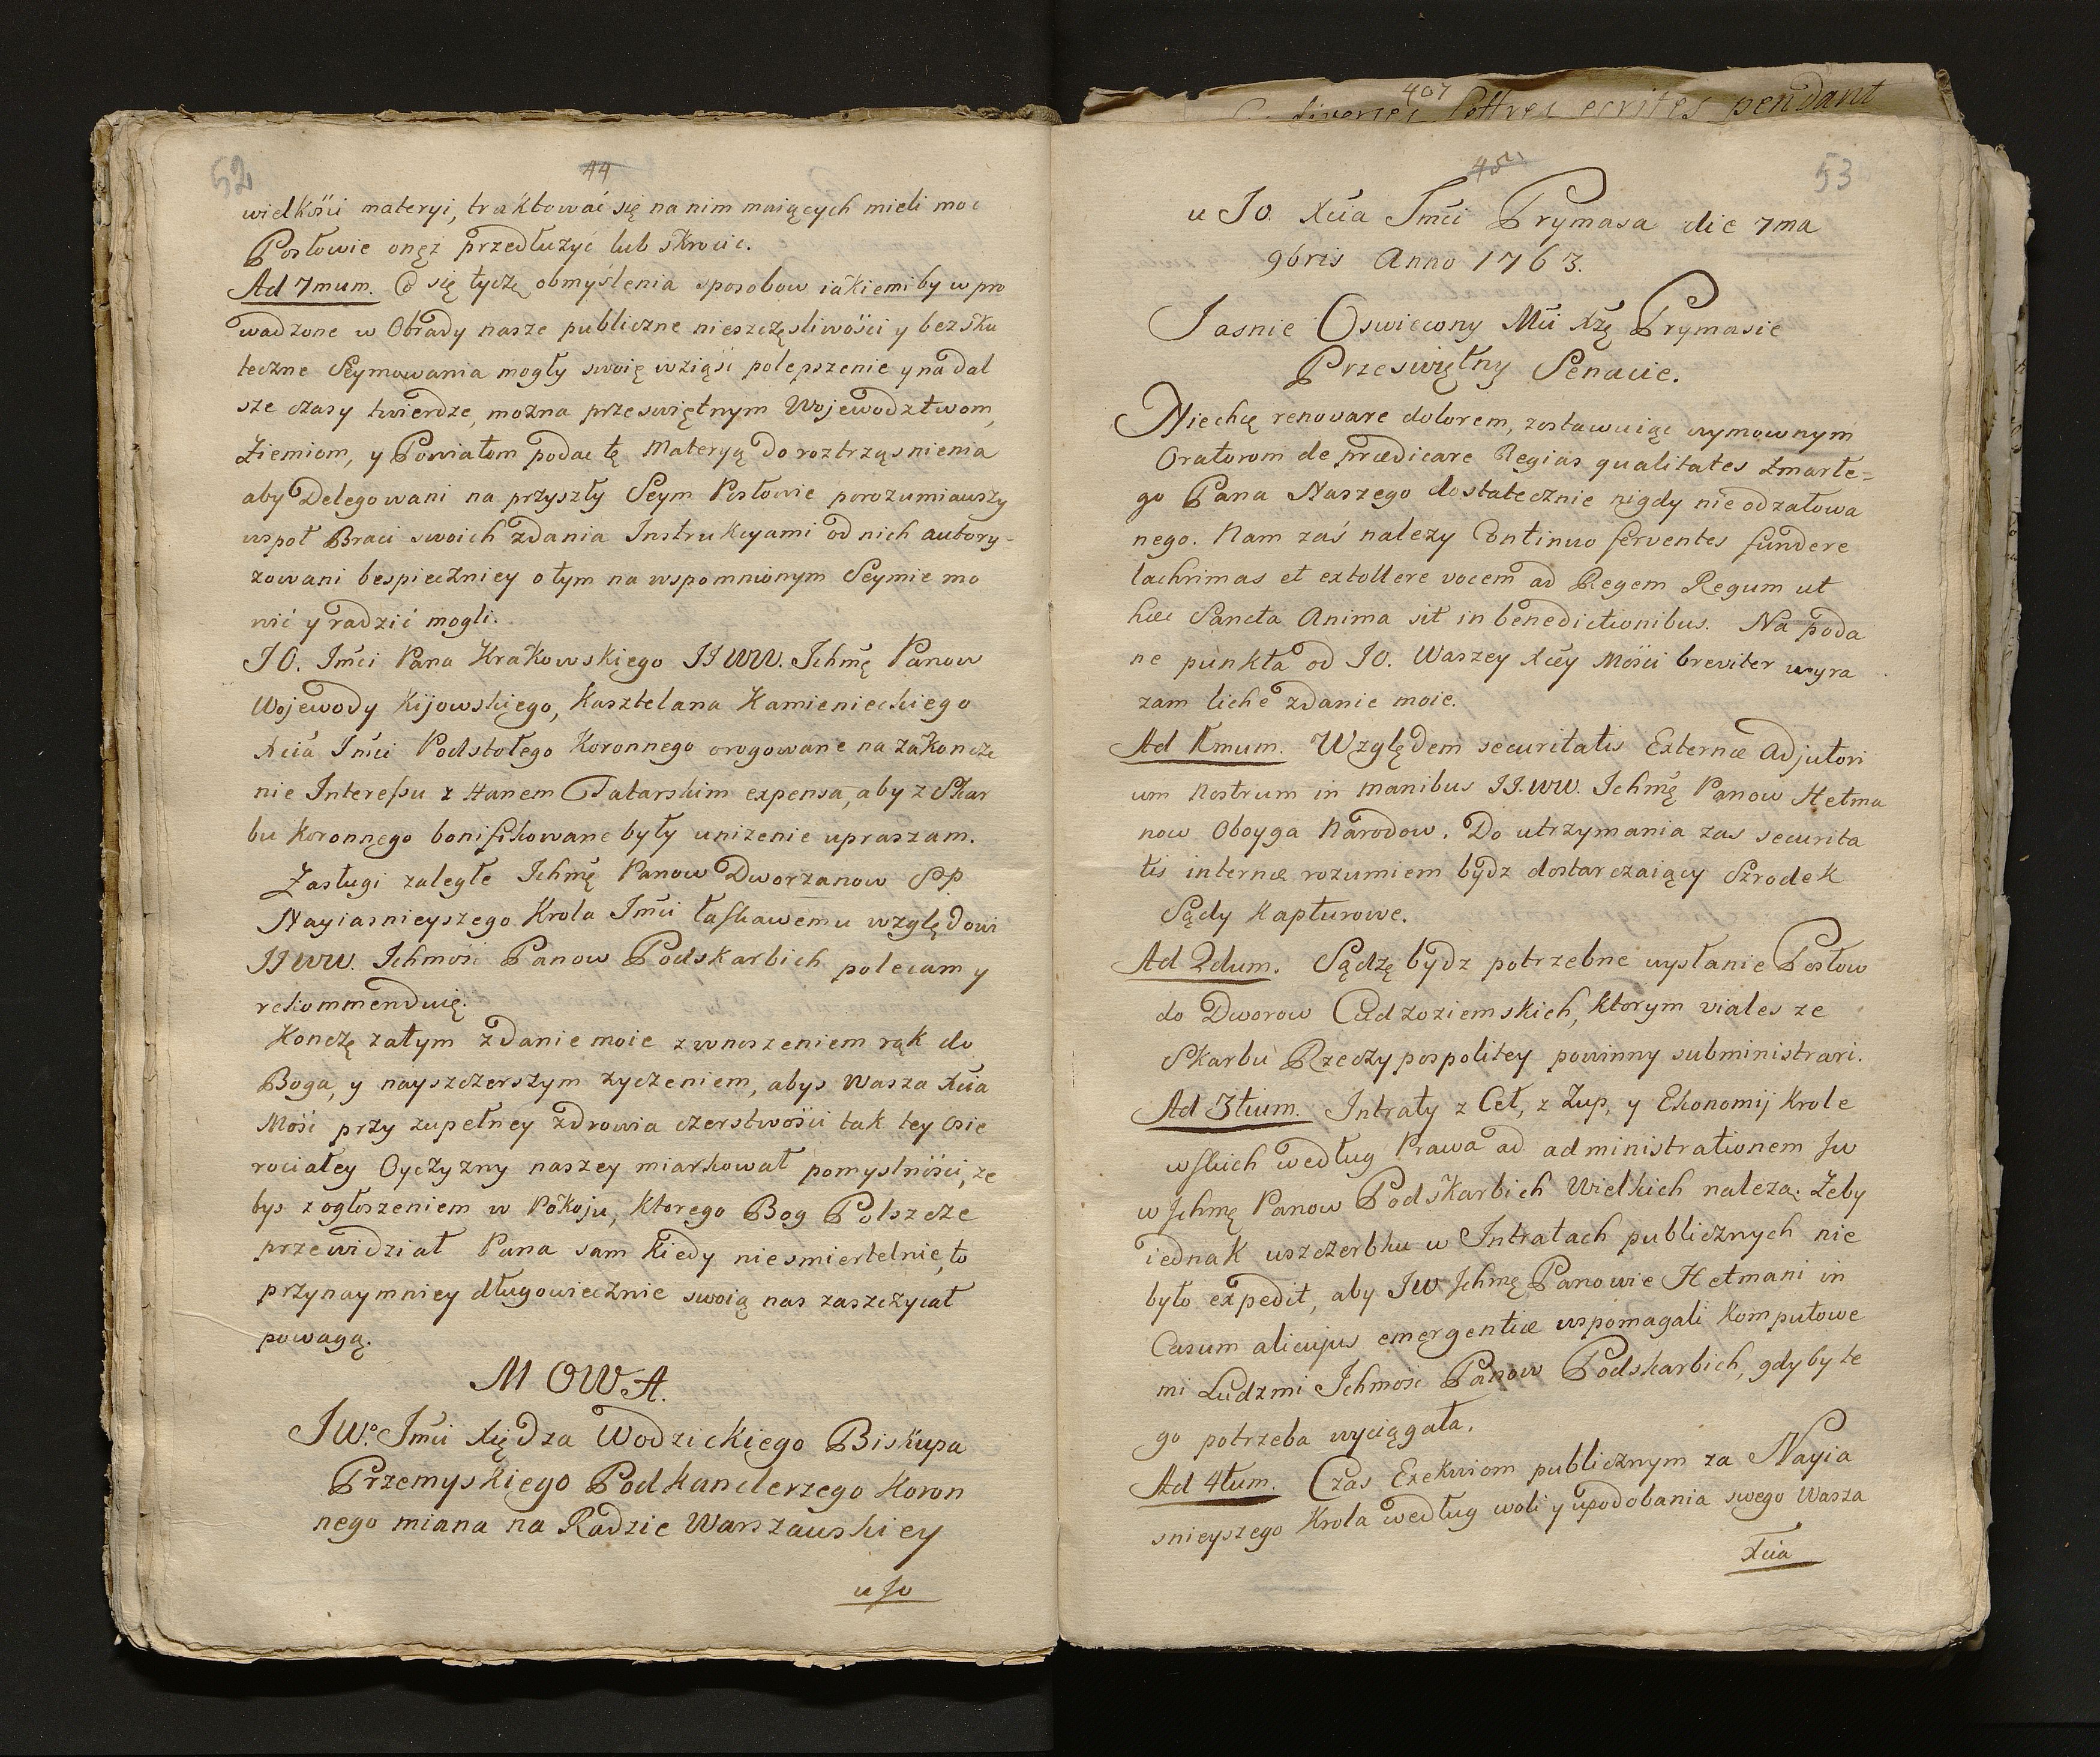 52
44
wielkości materyi, traktować się na nim maiących mieli moc
Posłowie onęż przedłużyć lub skrocic.
Ad 7mum. Co się tyczę obmyślenia sposobow iakiemi by w pro
wadzone w Obrady nasze publiczne nieszczęsliwości y bezsku
teczne Seymowania mogły swoię wziąść polepszenie y na dal
sze czasy twierdze, można przeświętnym Wojewodztwom,
Ziemiom, y Powiatom podac tę Materyą do roztrząsnienia
aby Delegowani na przyszły Seym Posłowie porozumiawszy
wspoł Braci swoich zdania Instrukcyami od nich autory-
zowani bespieczniey o tym na wspomnionym Seymie mo
wić y radzić mogli.
JO. Jmći Pana Krakowskiego JJWW. Ichmę Panow
Wojewody Kijowskiego, Kasztelana Kamienieckiego
Xcia Jmći Podstołego Koronnego erogowane na zakoncze
nie Interessu z Hanem Tatarskim expensa, aby z Skar
bu Koronnego bonifikowane były unizenie upraszam.
Zasługi zaległe Ichmę Panow Dworzanow SP.
Nayiasnieyszego Krola Jmći łaskawemu względowi
JJWW. Ichmość Panow Podskarbich polecam y
rekommenduię.
Konczę zatym zdanie moie z wnoszeniem rąk do
Boga, y nayszczerszym zyczeniem, abys Wasza Xcia
Mość przy zupełney zdrowia czerstwości tak tey osie
rociałey Oyczyzny naszey miarkował pomyslności, ze
bys z ogłoszeniem w Pokoju, ktorego Bog Polszcze
przewidział Pana sam kiedy niesmiertelnie, to
przynaymniey długowiecznie swoią nas zaszczycał
powagą.
MOWA.
JWo. Jmći Xiędza Wodzickiego Biskupa
Przemyskiego Podkanclerzego Koron
nego miana na Radzie Warszawskiey
u Jo
407
diverses lettres ecrites pendant
45
53
u JO. Xcia Jmći Prymasa die 7ma
9bris Anno 1763.
Jasnie Oswiecony Mći Xżę Prymasie
Przeswiętny Senacie.
Niechcę renovare dolorem, zostawuiąc wymownym
Oratorom depraedicare Regias qualitates zmarłe-
go Pana Naszego dostatecznie nigdy nie odzałowa
nego. Nam zaś nalezy Continuo ferventes fundere
lachrimas et extollere vocem ad Regem Regum ut
haec Sancta Anima sit in benedictionibus. Na poda
ne punkta od JO. Waszey Xcey Mości breviter wyra
zam liche zdanie moie.
Ad 1mum. Względem securitatis Externae Adjutori
um Nostrum in manibus JJ.WW. Ichmę Panow Hetma
now Oboyga Narodow. Do utrzymania zas securita
tis internae rozumiem bydz dostarczaiący Szrodek
Sądy Kapturowe.
Ad 2dum. Sądzę bydz potrzebne wysłanie Posłow
do Dworow Cudzoziemskich, ktorym viales ze
Skarbu Rzeczypospolitey powinny subministrari.
Ad 3tium. Intraty z Ceł, z Zup, y Ekonomij Krole
wskich według Prawa ad administrationem JW
W Ichmę Panow Podskarbich Wielkich naleza. Zeby
iednak uszczerbku w Intratach publicznych nie
było expedit, aby JW Ichmę Panowie Hetmani in
Casum alicujus emergentiae wspomagali Komputowe
mi Ludzmi Ichmość Panow Podskarbich, gdyby te
go potrzeba wyciągała.
Ad 4tum. Czas Exekwiom publicznym za Nayia
snieyszego Krola według woli y upodobania swego Wasza
Xcia